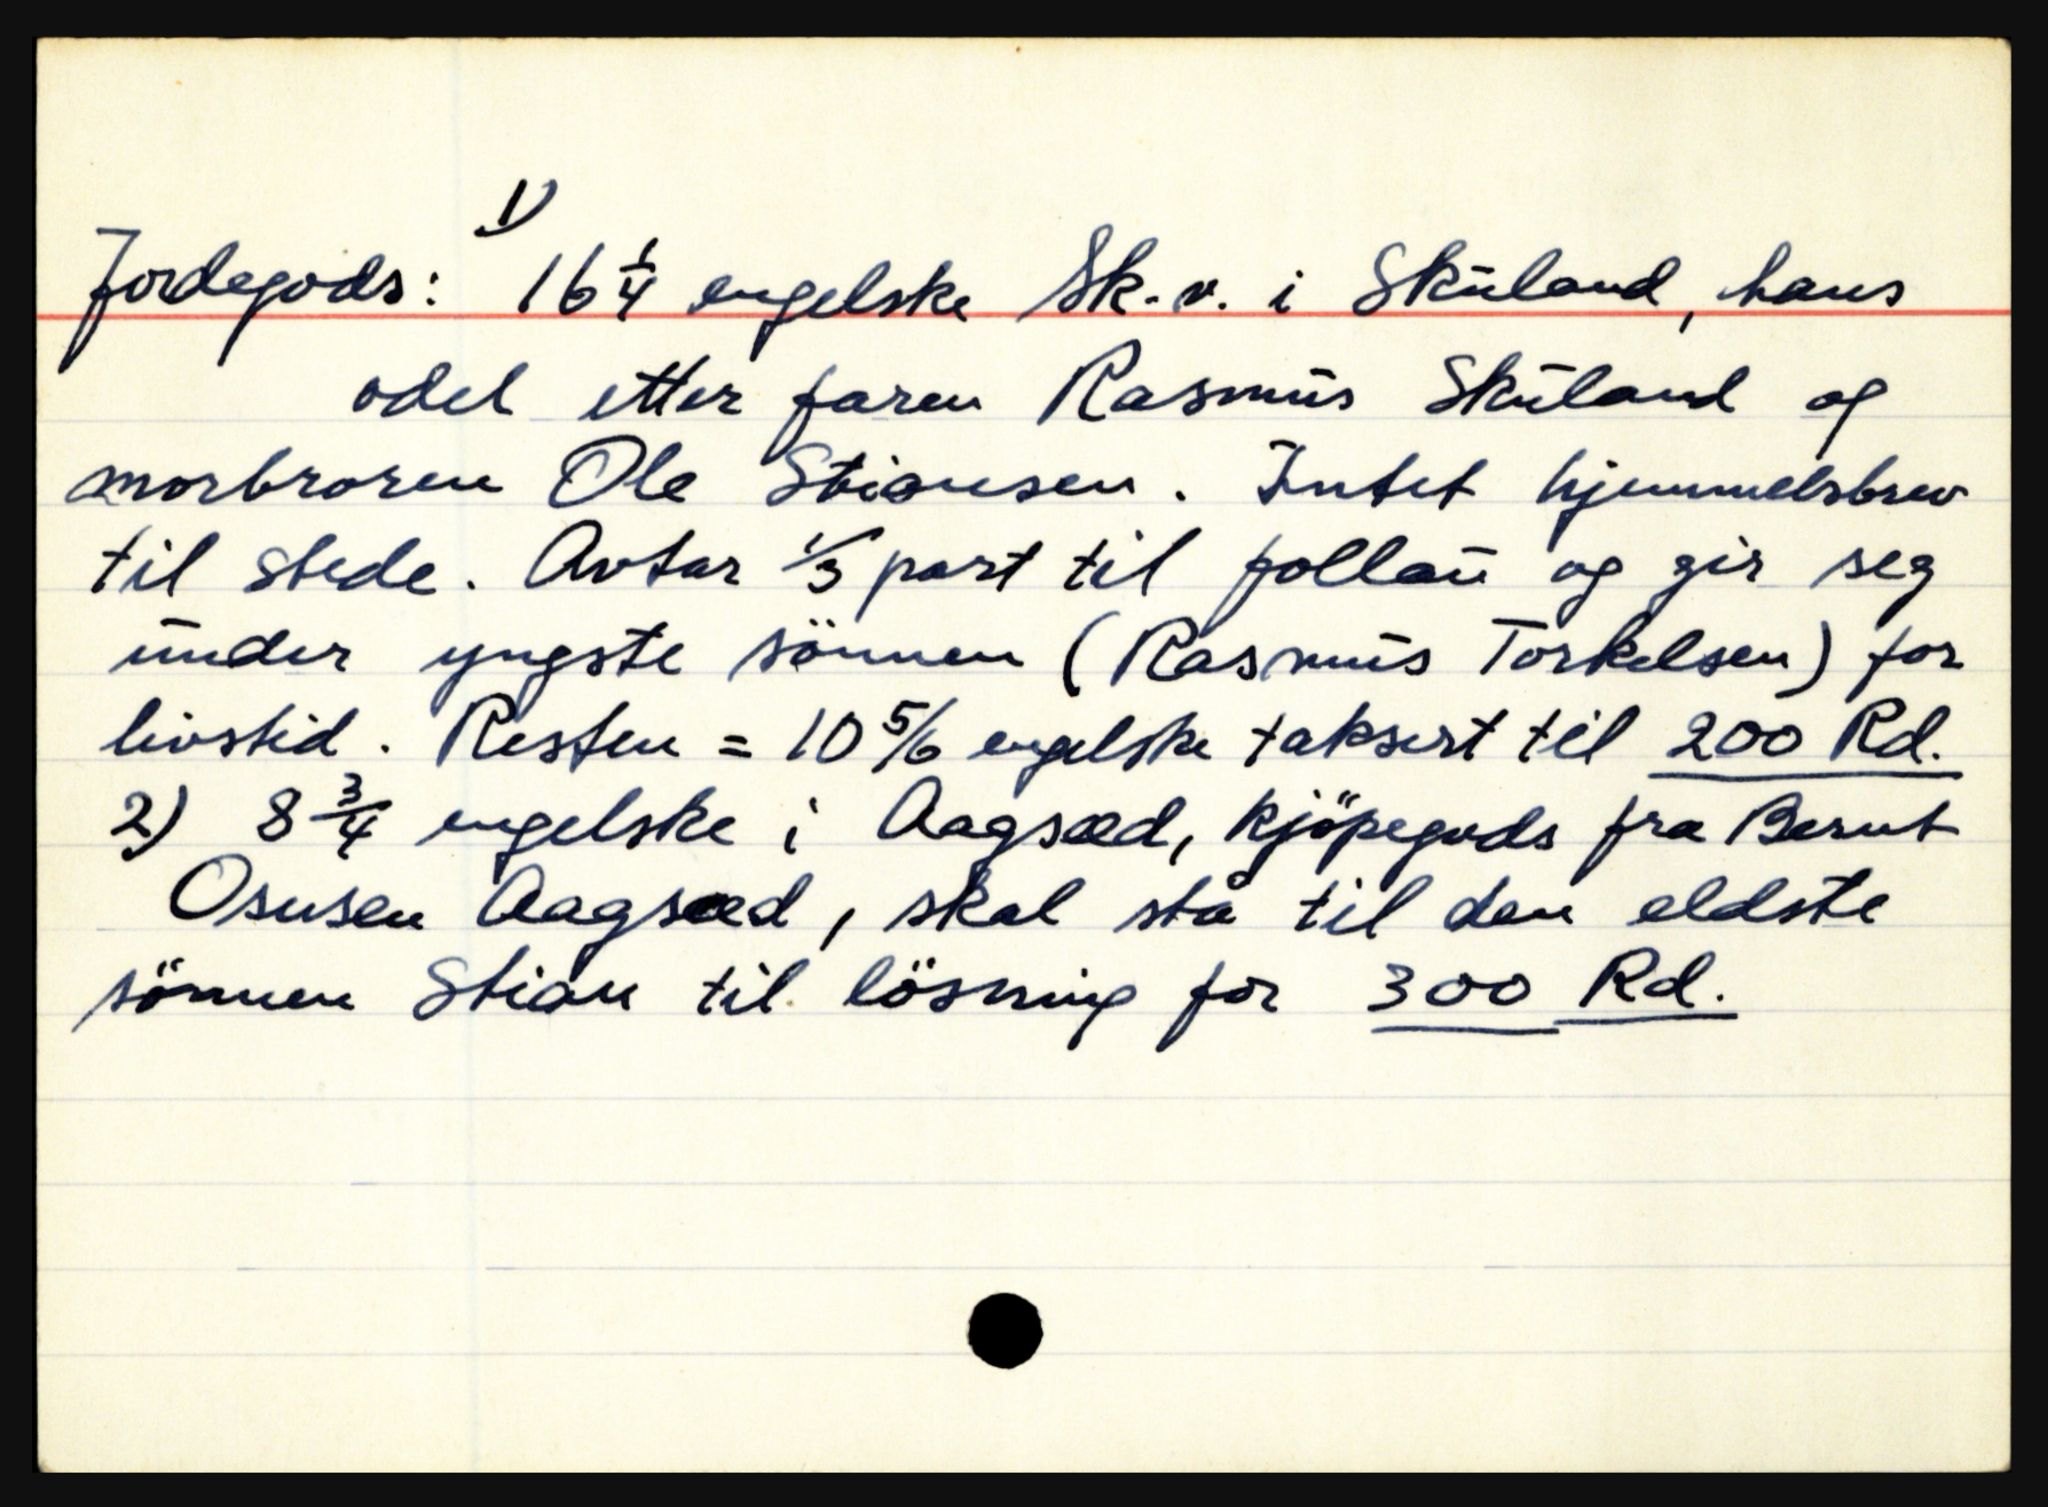 1)
Jordegods: 16 1/4 engelske Sk.v. i Skuland, hans
odel etter faren Rasmus Skuland og
morbroren Ole Stiansen. Intet hjemmelsbrev
til stede. Avtar 1/3 part til follau og gir seg
under yngste sönnen (Rasmus Torkelsen) for
livstid. Resten = 10 5/6 engelske taksert til 200 Rd.
2) 8 3/4 engelske i Aagsæd, kjöpegods fra Bernt
Osusen Aagsæd, skal stå til den eldste
sönnen Stian til lösning for 300 Rd.